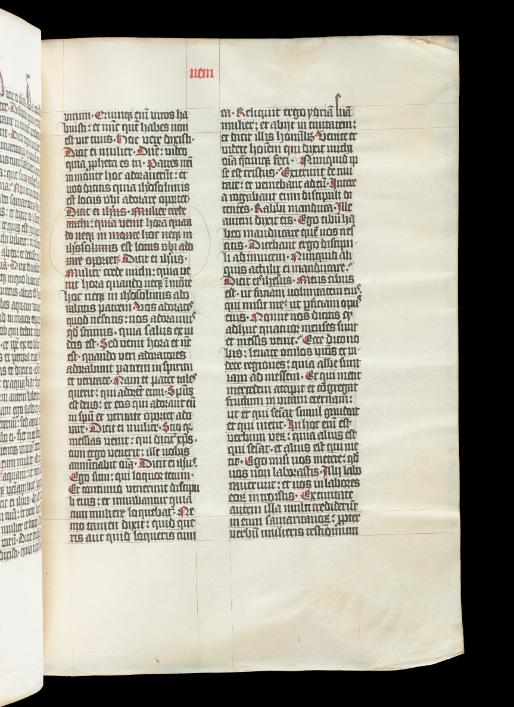 nem
virum. Quinqȝ eni᷑ viros ha
buisti: et nu̅c que̅ habes non
est tuus vir. Hoc vere dixisti.
Dicit ei mulier. Dn̅e: video
quia ꝓpheta es tu. Patres nr̅i
in monte hoc adorauerūt: et
vos dicitis quia ihrosolimis
est locus vbi adorare oportet.
Dicit ei ihs̅us. Mulier crede
michi: quia venit hora quan
do neqȝ in monte hoc neqȝ in
ihrosolimis est locus vbi ado
rare oportet. Dicit ei ihs̅us.
Mulier crede michi: quia ve
nit hora quando neqȝ i̅ mo̅te
hoc neqȝ in ihrosolimis ado
rabitis patrem. Vos adoratis
quod nescitis: nos adoramꝰ
qd̅ scimus. quia salus ex iu
deis est. Sed venit hora et nu̅c
est. quando veri adoratores
adorabunt patrem in spiritu
et veritate. Nam et pater tales
querit: qui adorēt eum. Spi̅tus
est deus: et eos qui adorant eū
in spi̅tu et veritate oportet ado
rare. Dicit ei mulier. Scio qȝ
messias venit: qui dicit᷑ xp̅s.
cum ergo venerit: ille nobis
annūciabit oi̅a. Dicit ei ihs̅us.
Ego sum: qui loquor tecum.
Et continuo venerunt discipu
li eius: et mirabantur quia
cum muliere loquebat᷑. Ne
mo tamen dixit: quid que
ris aut quid loqueris cum
ea. Reliquit ergo ydriā suā
mulier: et abijt in ciuitatem:
et dicit illis hominibꝰ. Venite et
videte hominē qui dixit michi
oi̅a quecūqȝ feci. Nunquid ip
se est cristus. Exierunt de ciui
tate: et veniebant ad eū. Interea
rogabant eum discipuli di
centes. Rabbi manduca. Ille
autem dixit eis. Ego cibū ha
beo manducare que̅ vos nes
citis. Dicebant ergo discipu
li adinuicem. Nunquid ali
quis attulit ei manducare.
Dicit eis ihesus. Meus cibus
est. ut faciam voluntatem eius
qui misit me: ut ꝑficiam opus
eius. Nonne vos dicitis qȝ
adhuc quatuor menses sunt
et messis venit. Ecce dico vo
bis: leuate oculos vr̅os et vi
dete regiones: quia albe sunt
iam ad messem. Et qui metit
mercedem accipit et cōgregat
fructum in vitam eternam:
ut et qui semi̅at simul gaudeat
et qui metit. In hoc eni᷑ est
verbum veꝝ: quia alius est
qui semi̅at. et alius est qui me
tit. Ego misi vos metere: qd̅
vos non laborastis. Alij labo
rauerunt: et vos in labores
eoꝝ introistis. Ex ciuitate
autem illa multi crediderūt
in eum samaritanoꝝ: ꝓpter
verbū mulieris testimoniū